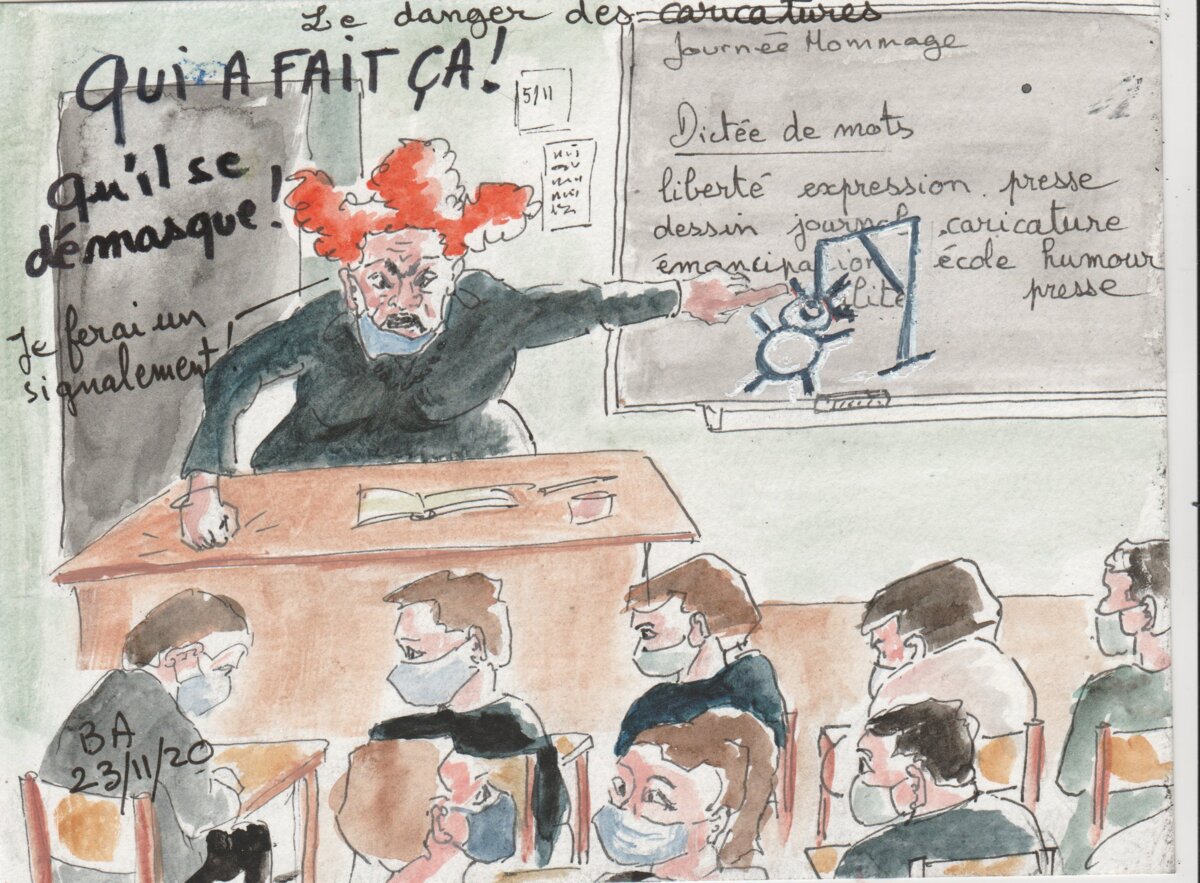 Le danger des caricatures
QUI A FAIT ÇA!
qu'il se
démasque!
Je ferai un
signalement!
5/11
Journée Hommage
Dictée de mots
liberté expression presse
dessin journal caricature
émancipation école humour
presse
BA
23/11/20